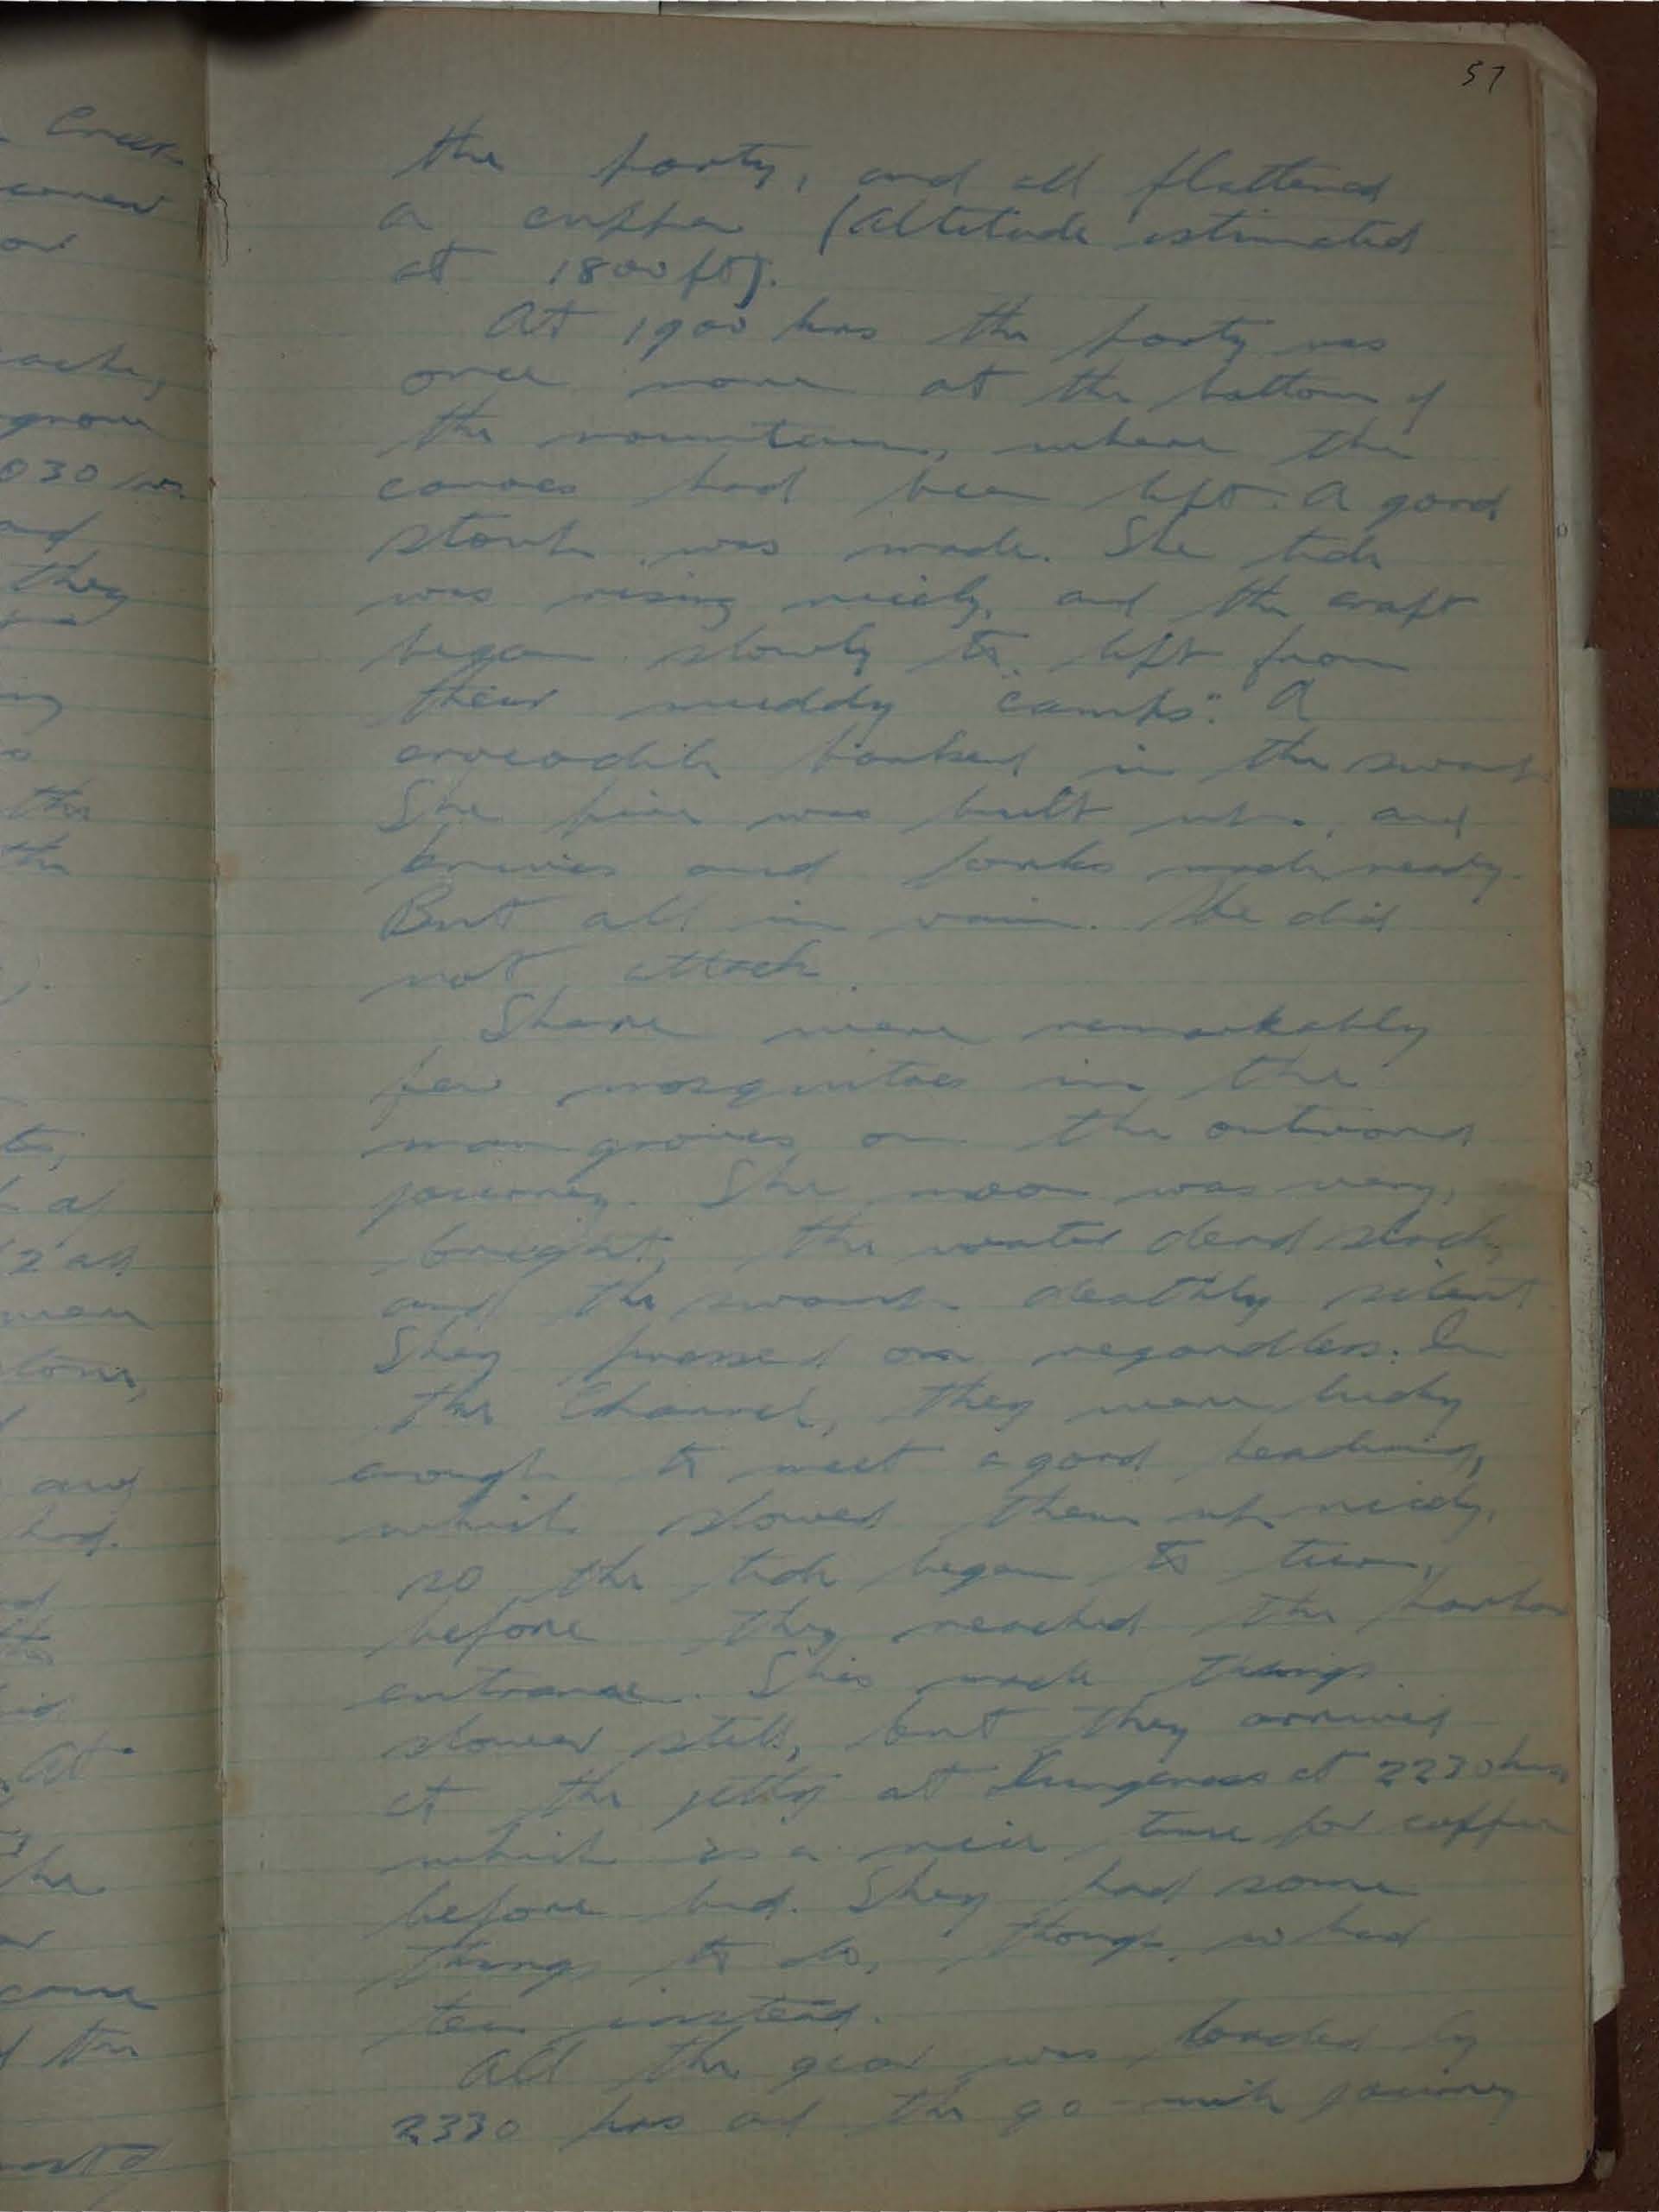 57
the party, and all flattened
a cuppa (altitude estimated
at 1800 ft).
At 1900 hrs the party was
once more at the bottom of
the mountain, where the
canoes had been left. A good
stoush was made. The tide
was rising nicely, and the craft
began slowly to lift from
their muddy "camps". A
crocodile barked in the swamp
The fire was built up, and
knives and forks made ready.
But all in vain. He did
not attack.
There were remarkably
few mosquitoes in the
mangroves on the outward
journey. The moon was very
bright, the water dead slack,
and the swamp deathly silent
They pressed on regardless. In
the Channel, they were lucky
enough to meet a good headwind,
which slowed them up nicely,
so the tide began to turn
before they reached the harbor
entrance. This made things
slower still, but they arrived
at the jetty at Dungeness at 2230 hrs,
which is a nice time for cuppa
before bed. They had some
things to do, though, so had
tea instead.
All the gear was loaded by
2330 hrs and the 90-mile journey
Creek
030 hrs
and
they
the
the
and
had.
At
he
came